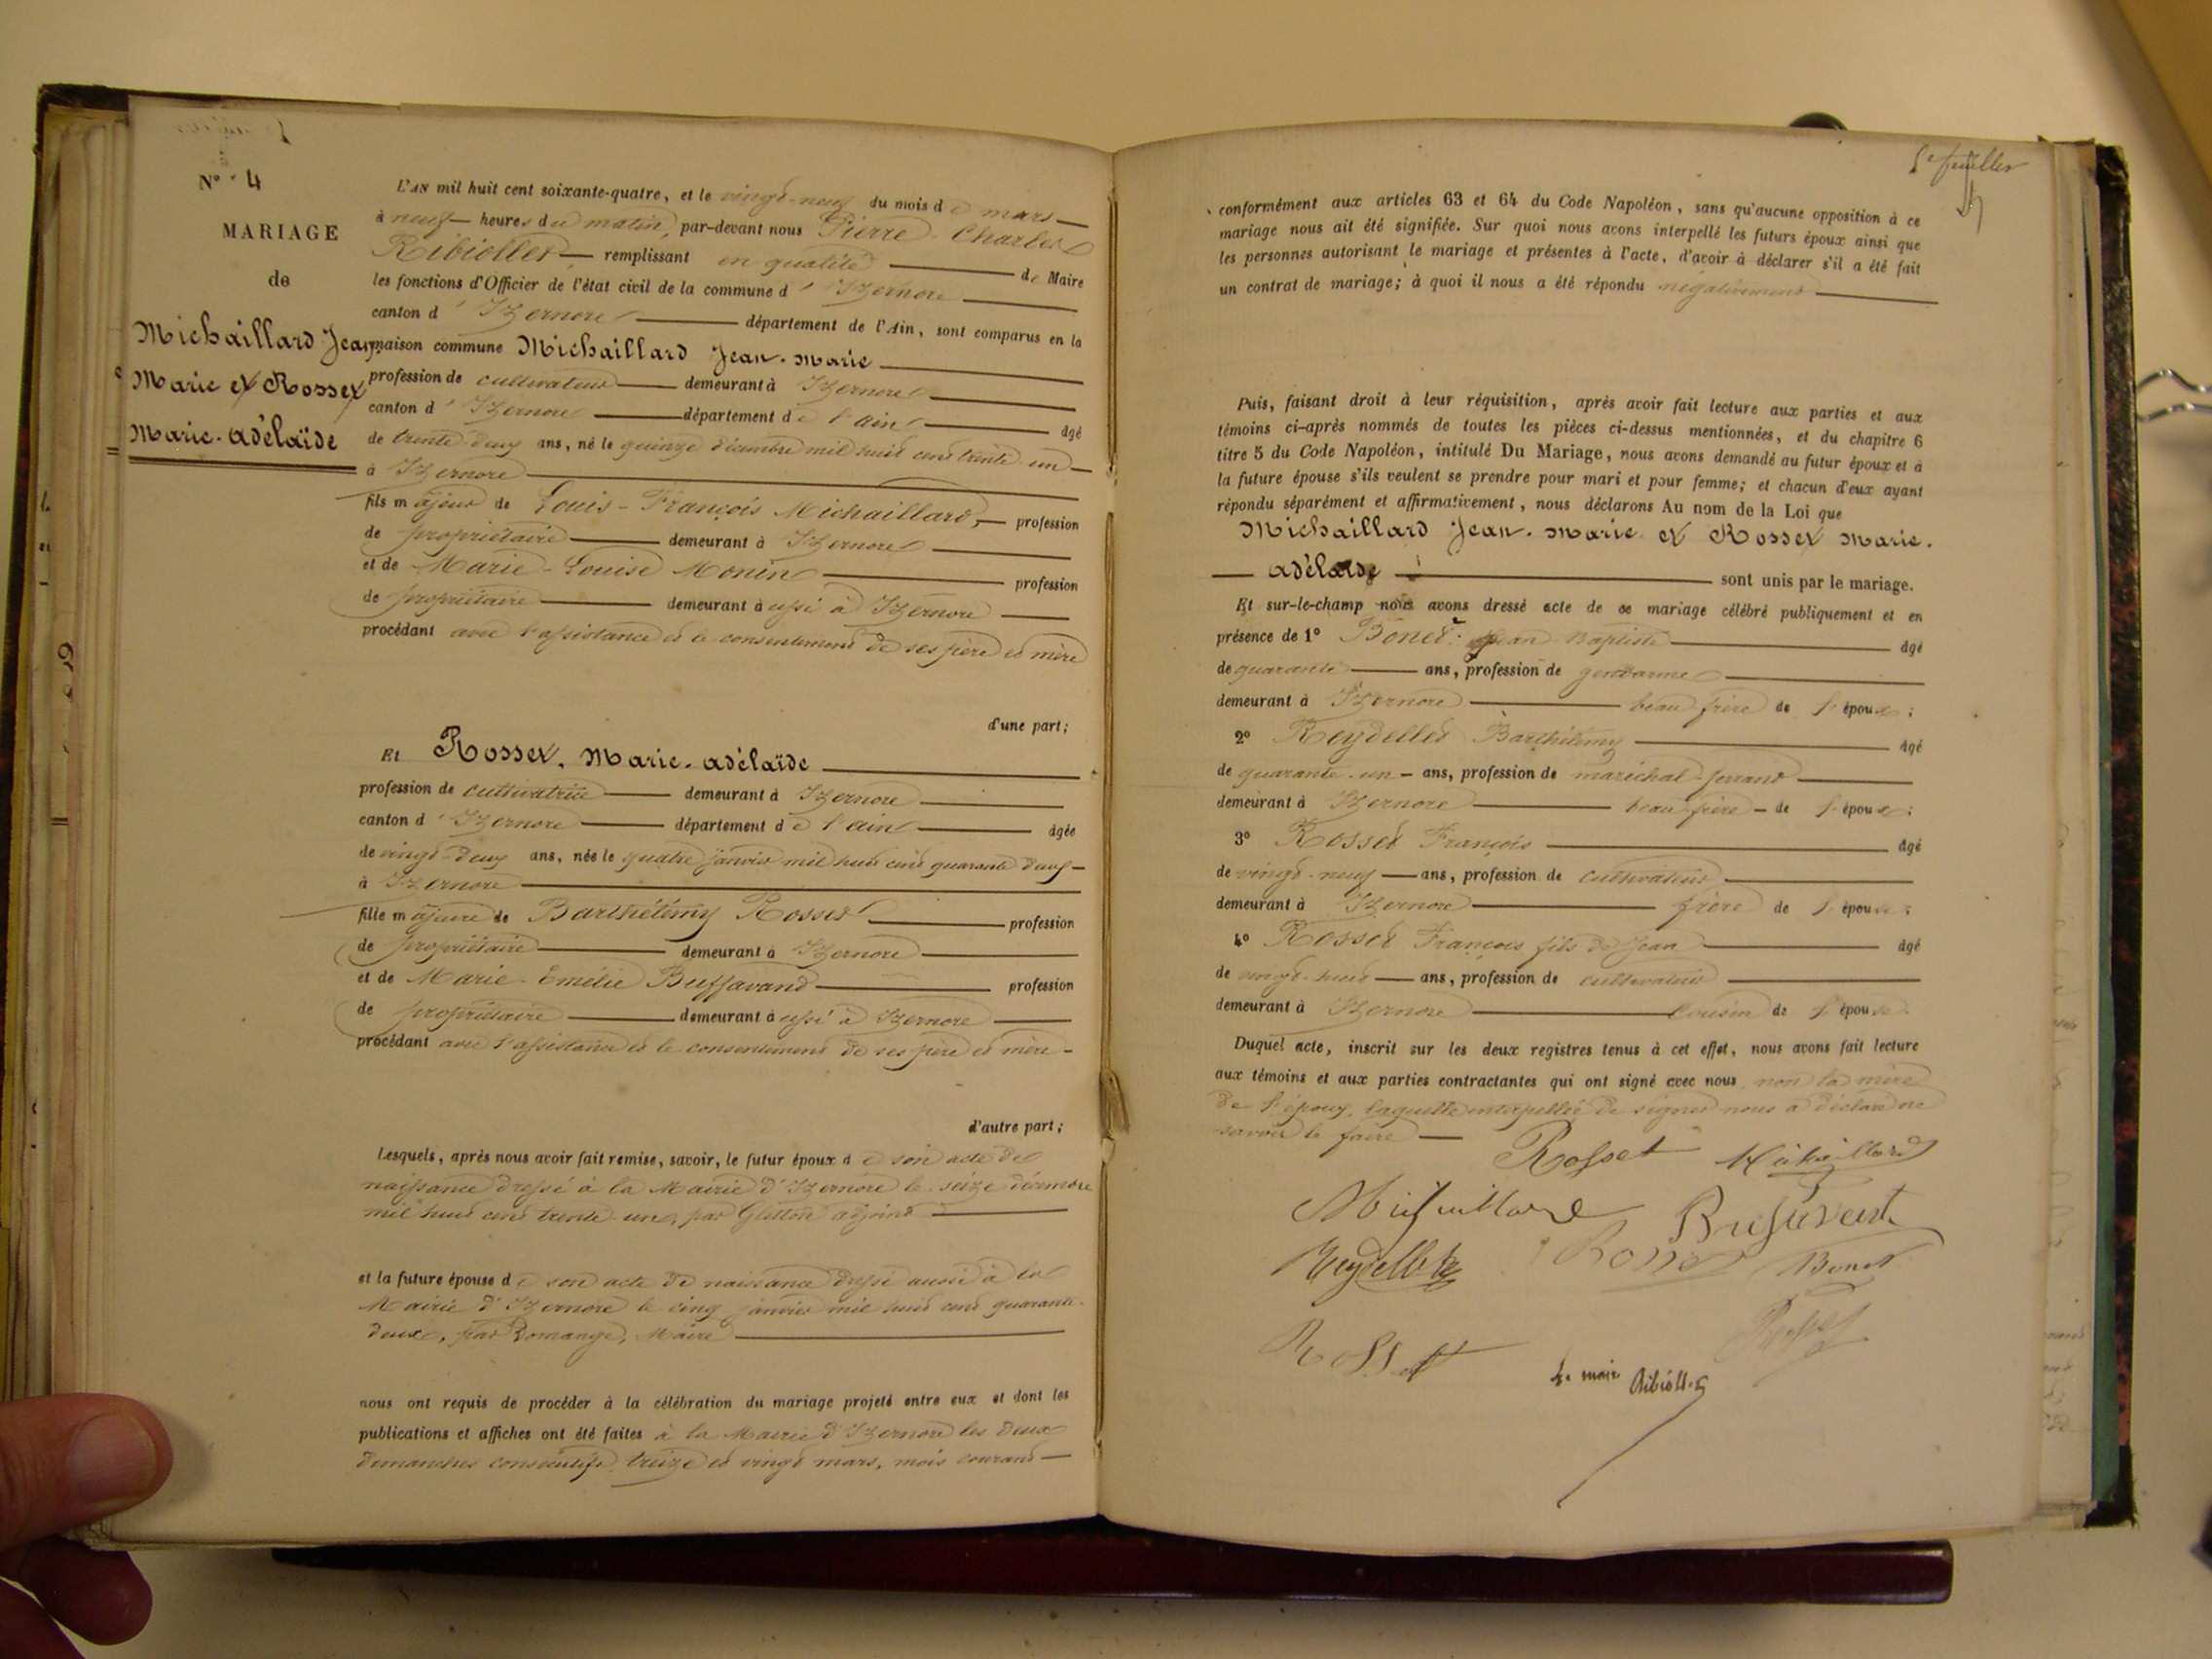 N° 4
MARIAGE
de
Michaillard Jean
Marie et Rosset
Marie-adélaïde
L'AN mil huit cent soixante-quatre, et le vingt-neuf du mois de mars
à neuf heures du matin, par-devant nous Pierre Charles
Ribiollet remplissant en qualité de Maire
les fonctions d'Officier de l'état civil de la commune d'Izernore
canton d'Izernore département de l'Ain, sont comparus en la
maison commune Michaillard Jean-Marie
profession de cultivateur demeurant à Izernore
canton d'Izernore département de l'ain âgé
de trente-deux ans, né le quinze décembre mil huit cent trente-un
à Izernore
fils majeur de Louis-François Michaillard, profession
de propriétaire demeurant à Izernore
et de Marie-Louise Monin profession
de propriétaire demeurant aussi à Izernore
procédant avec l'assistance et le consentement de ses père et mère
d'une part;
Et Rosset, Marie-adélaïde
profession de cultivatrice demeurant à Izernore
canton d'Izernore département de l'ain âgée
de vingt-deux ans, née le quatre janvier mil huit cent quarante deux
à Izernore
fille majeure de Barthélémy Rosset profession
de propriétaire demeurant à Izernore
et de Marie-Emélie Buffavand profession
de propriétaire demeurant aussi à Izernore
procédant avec l'assistance et le consentement de ses père et mère
d'autre part;
Lesquels, après nous avoir fait remise, savoir, le futur époux de son acte de
naissance dressé à la Mairie d'Izernore le seize décembre
mil huit cent trente-un, par adjoint
et la future épouse de son acte de naissance dressé aussi à la
Mairie d'Izernore le cinq janvier mil huit cent quarante-
deux, par Romange, Maire
nous ont requis de procéder à la célébration du mariage projeté entre eux et dont les
publications et affiches ont été faites à la Mairie d'Izernore les deux
dimanches consécutifs treize et vingt mars, mois courant
5e feuillet
conformément aux articles 63 et 64 du Code Napoléon, sans qu'aucune opposition à ce
mariage nous ait été signifiée. Sur quoi nous avons interpellé les futurs époux ainsi que
les personnes autorisant le mariage et présentes à l'acte, d'avoir à déclarer s'il a été fait
un contrat de mariage; à quoi il nous a été répondu négativement
Puis, faisant droit à leur réquisition, après avoir fait lecture aux parties et aux
témoins ci-après nommés de toutes les pièces ci-dessus mentionnées, et du chapitre 6
titre 5 du Code Napoléon, intitulé Du Mariage, nous avons demandé au futur époux et à
la future épouse s'ils veulent se prendre pour mari et pour femme; et chacun d'eux ayant
répondu séparément et affirmativement, nous déclarons Au nom de la Loi que
Michaillard Jean-Marie et Rosset Marie-
adélaïde sont unis par le mariage.
Et sur-le-champ nous avons dressé acte de ce mariage célébré publiquement et en
présence de 1° Bonet Jean Baptiste âgé
de quarante ans, profession de gendarme
demeurant à Izernore beau frère de l'époux;
2° Reydellet Barthélemy âgé
de quarante-un ans, profession de maréchal-ferrant
demeurant à Izernore beau frère de l'époux;
3° Rosset François âgé
de vingt-neuf ans, profession de cultivateur
demeurant à Izernore frère de l'épouse;
4° Rosset François fils de Jean âgé
de vingt-huit ans, profession de cultivateur
demeurant à Izernore Cousin de l'épouse
Duquel acte, inscrit sur les deux registres tenus à cet effet, nous avons fait lecture
aux témoins et aux parties contractantes qui ont signé avec nous non la mère
de l'époux, laquelle interpellée de signer nous a déclaré ne
savoir le faire
Rosset Michaillard
Michaillard Bufavent
Reydellet Rosset Bonet
Rosset
Rosset
Le maire Ribiollet